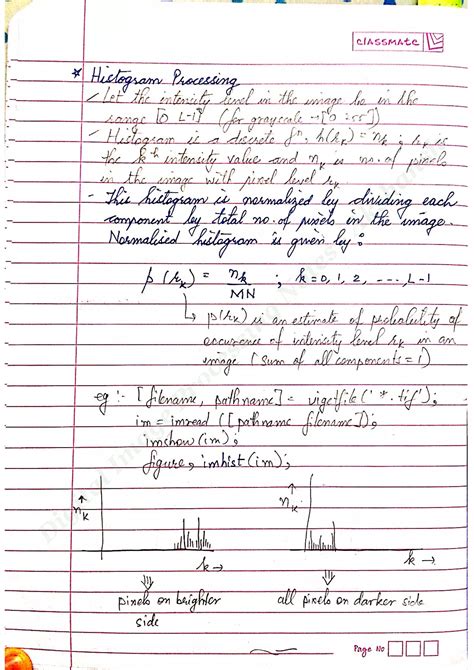 classmate
* Histogram Processing
- Let the intensity level in the image be in the
range [0 L-1] (for grayscale → [0 255])
- Histogram is a discrete fⁿ, h(rₖ) = nₖ ; rₖ is
the kᵗʰ intensity value and nₖ is no. of pixels
in the image with pixel level rₖ
- This histogram is normalized by dividing each
component by total no. of pixels in the image.
Normalised histogram is given by :
p(rₖ) = nₖ/MN ; k=0, 1, 2, ---, L-1
↳ p(rₖ) is an estimate of probability of
occurance of intensity level rₖ in an
image (sum of all components = 1)
eg :- [filename, pathname] = uigetfile('*.tif');
im = imread ([pathname filename]);
imshow(im);
figure, imhist(im);
↑ nₖ k → ↑ nₖ k →
⇓ ⇓
pixels on brighter all pixels on darker side
side
Page No